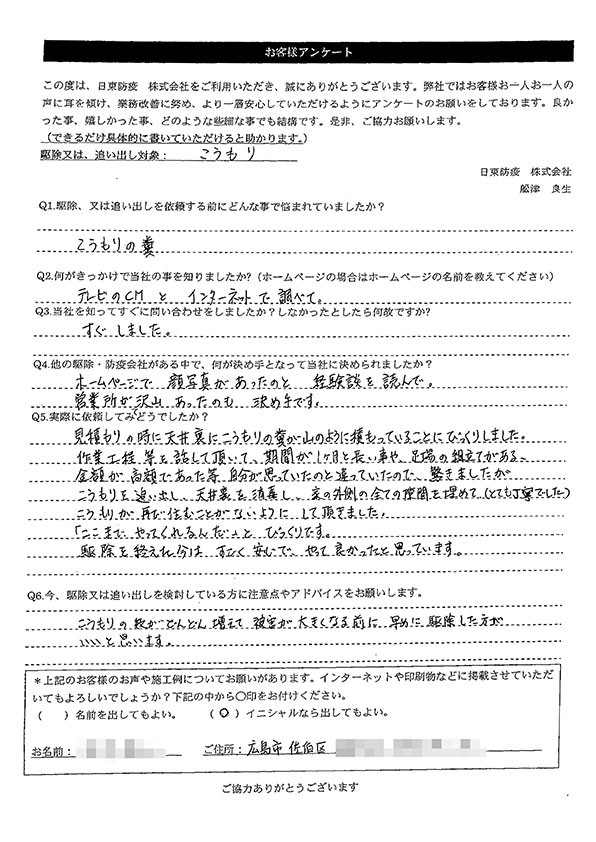 お客様アンケート
この度は、日東防疫 株式会社をご利用いただき、誠にありがとうございます。弊社ではお客様お一人お一人の
声に耳を傾け、業務改善に努め、より一層安心していただけるようにアンケートのお願いをしております。良か
った事、嬉しかった事、どのような些細な事でも結構です。是非、ご協力お願いします。
(できるだけ具体的に書いていただけると助かります。)
駆除又は、追い出し対象： こうもり
日東防疫 株式会社
舩津 良生
Q1.駆除、又は追い出しを依頼する前にどんな事で悩まれていましたか？
こうもりの糞
Q2.何がきっかけで当社の事を知りましたか?（ホームページの場合はホームページの名前を教えてください）
テレビのCM と インターネットで調べて。
Q3.当社を知ってすぐに問い合わせをしましたか？しなかったとしたら何故ですか?
すぐしました。
Q4.他の駆除・防疫会社がある中で、何が決め手となって当社に決められましたか？
ホームページで 顔写真があったのと 経験談を読んで。
営業所が沢山 あったのも 決め手です。
Q5.実際に依頼してみどうでしたか？
て
見積もりの時に天井裏にこうもりの糞が山のように積もっていることにびっくりしました。
作業工程等を話して頂いて、期間が1ヶ月と長い事や、足場の組立てがある、
金額が高額であった等、自分が思っていたのと違っていたので、驚きましたが
こうもりを追い出し、天井裏を消毒し、家の外側の全ての隙間を埋めて(とても丁寧でした)
こうもりが再び住むことがないようにして頂きました。
「ここまでやってくれるんだ」とびっくりです。
駆除を終えた今は すごく安心で、やって良かったと思っています。
Q6.今、駆除又は追い出しを検討している方に注意点やアドバイスをお願いします。
こうもりの数がどんどん増えて被害が大きくなる前に早めに駆除した方が
いいと思います。
＊上記のお客様のお声や施工例についてお願いがあります。インターネットや印刷物などに掲載させていただ
いてもよろしいでしょうか？下記の中から○印をお付けください。
（ ）名前を出してもよい。 （○）イニシャルなら出してもよい。
お名前： ご住所：広島市 佐伯区
ご協力ありがとうございます